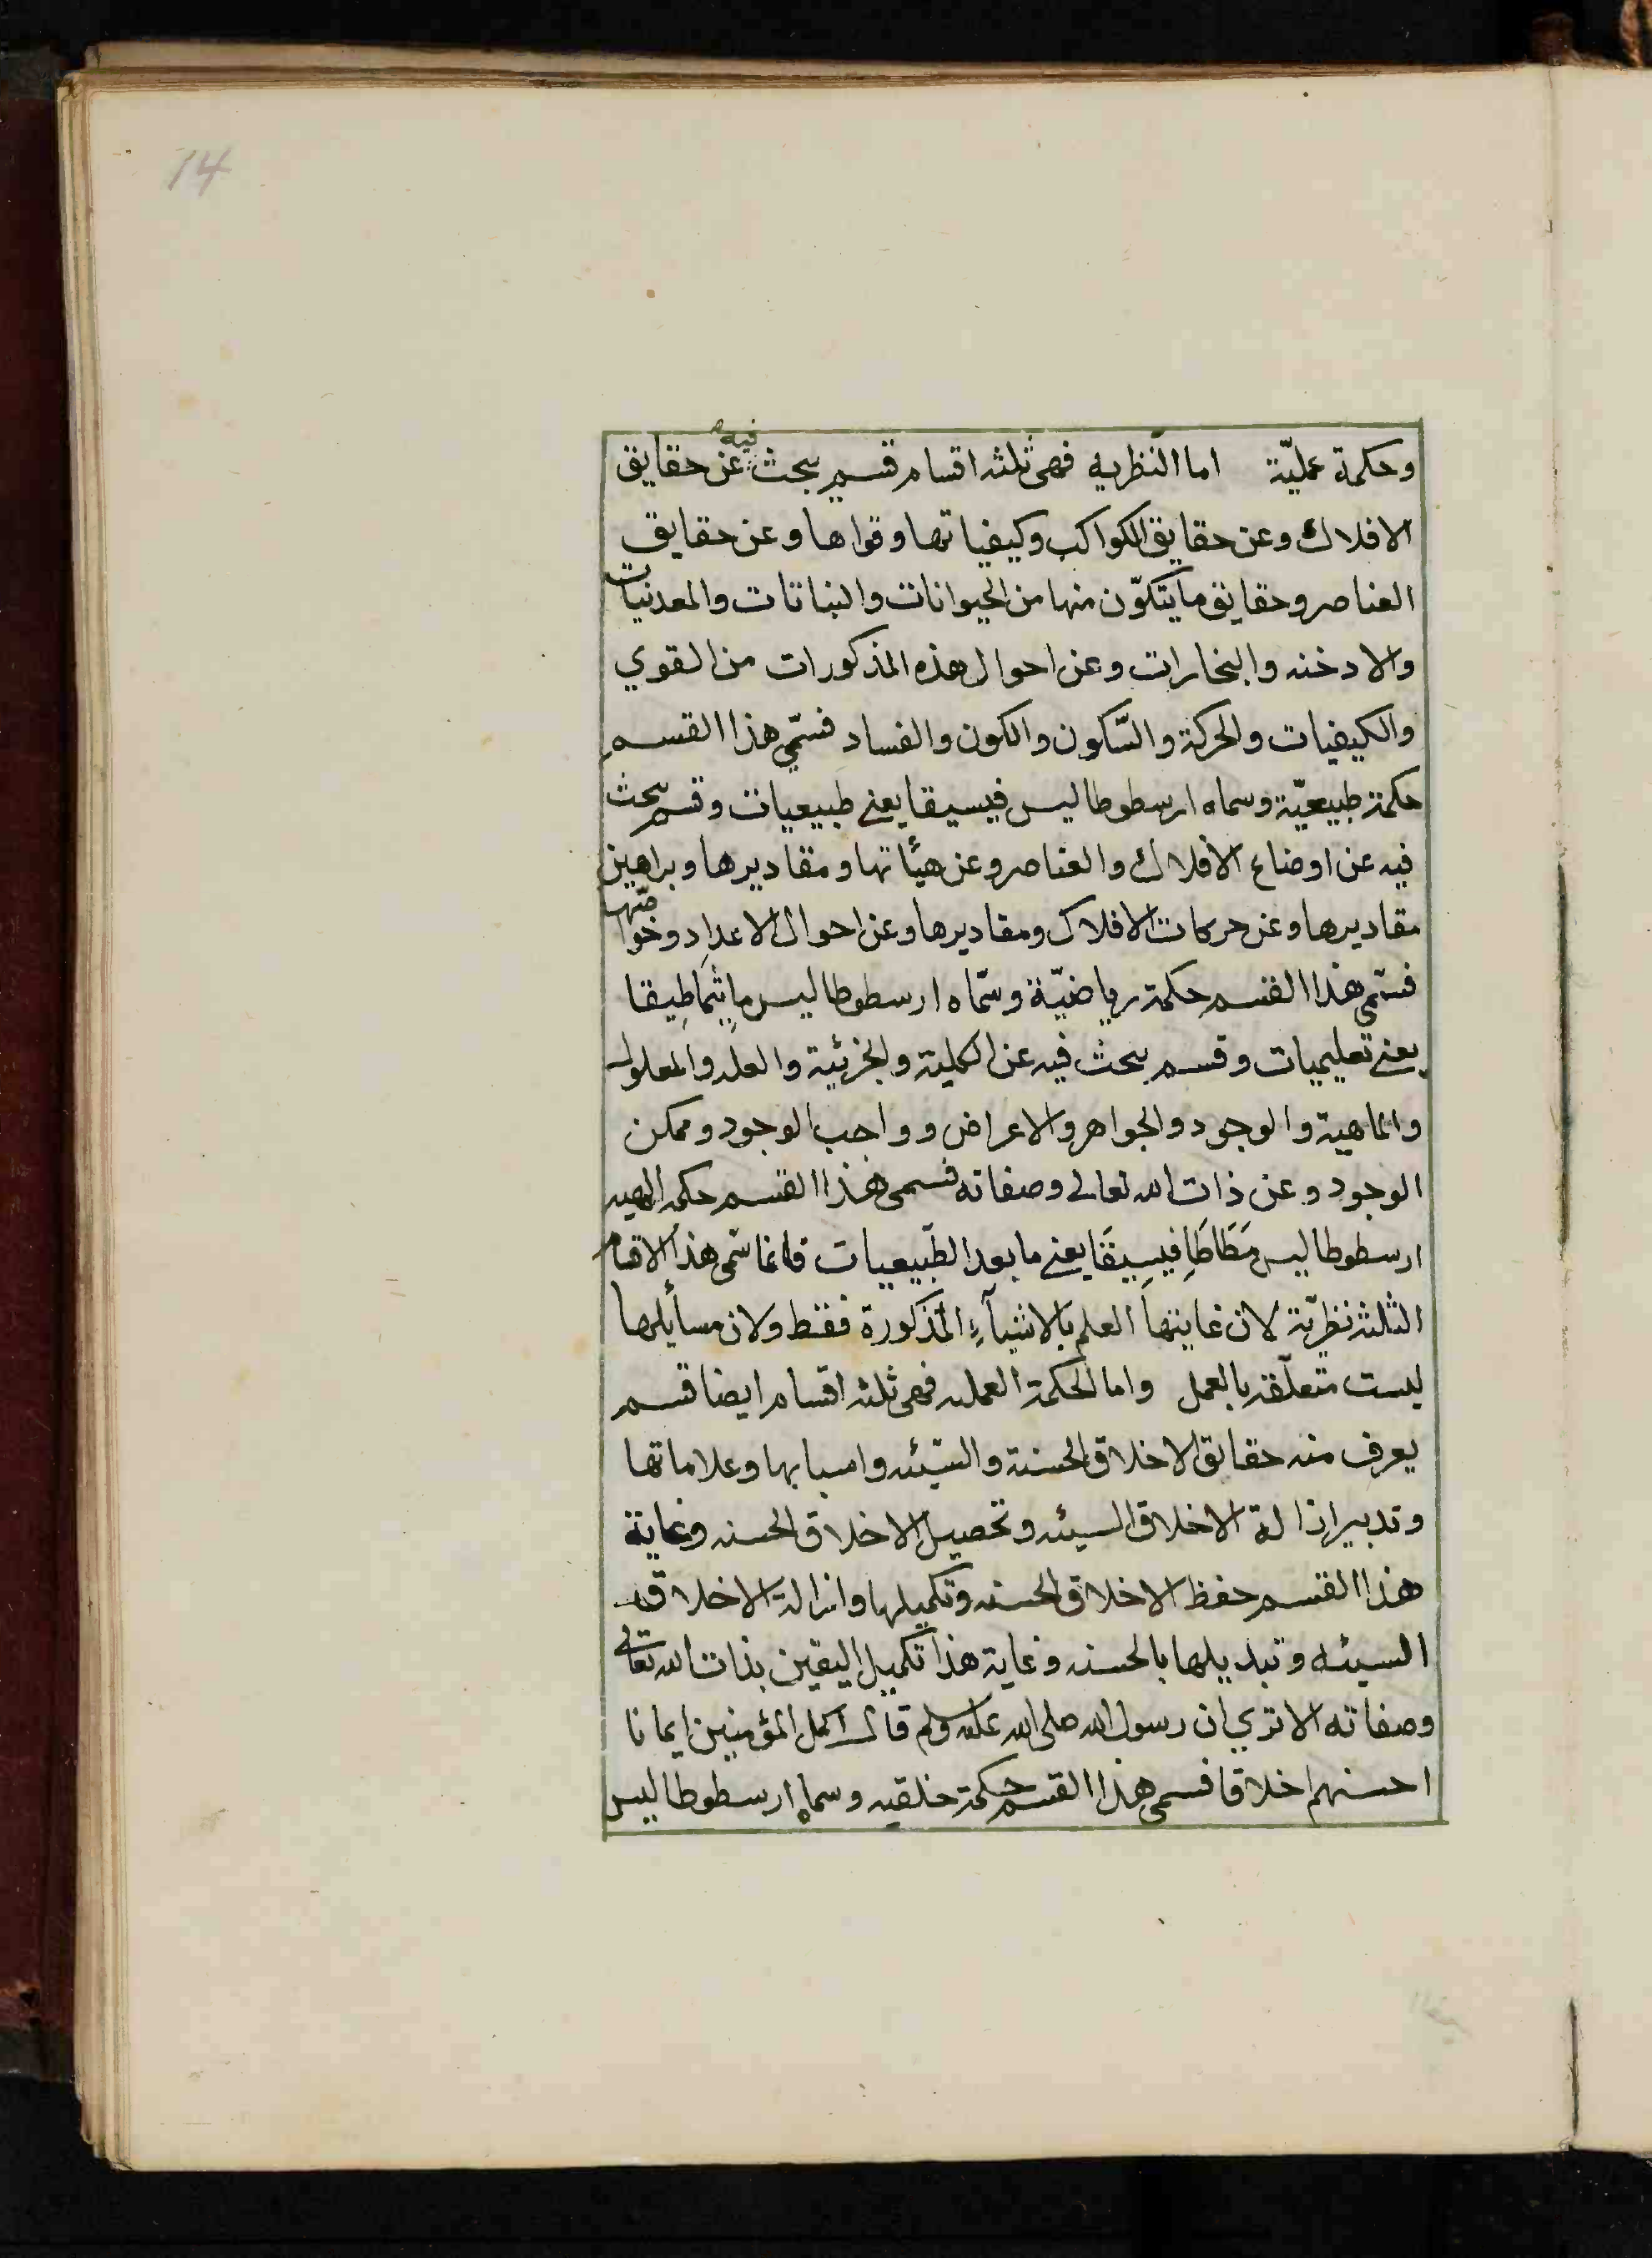 14
وحكمة عمليّة اما النظريه فهى ثلثه اقسام قسم يبحث فيه عن حقايق
الافلاك وعن حقايق الكواكب وكيفياتها وقواها وعن حقايق
العناصر وحقايق ما يتكوّن منها من الحيوانات والنباتات والمعدنيات
والادخنه والبخارات وعن احوال هذه المذكورات من القوي
والكيفيات والحركة والسّكون والكون والفساد فسمّي هذا القسم
حكمة طبيعيّة وسماه ارسطوطاليس فيسيقا يعنے طبيعيات وقسم يبحث
فيه عن اوضاع الافلاك والعناصر وعن هيئاتها ومقاديرها وبراهين
مقاديرها وعن حركات الافلاك ومقاديرها وعن احوال الاعداد وخواصّها
فسمّي هذا القسم حكمة رياضيّة وسمّاه ارسطوطاليس ماثِمَاطِيقا
يعنے تعليميات وقسم يبحث فيه عن الكلية والجزئية والعله والمعلول
والماهية والوجود والجواهر والاعراض وواجب الوجود وممكن
الوجود وعن ذات الله تعالى وصفاته فسمى هذا القسم حكمه الهيه
ارسطوطاليس مَطَاطَافِيسِيقَا يعنے ما بعد الطّبيعيات فانما سمّى هذا الاقسام
الثلثه نظريّة لان غايتها العلم بالاشيآءِ المذكورة فقط ولان مسائلها
ليست متعلّقه بالعمل واما الحكمة العمليه فهى ثلثه اقسام ايضا قسم
يعرف منه حقايق الاخلاق الحسنة والسّيئه واسبابها وعلاماتها
وتدبير ازالة الاخلاق السيئه وتحصيل الاخلاق الحسنه وغاية
هذا القسم حفظ الاخلاق الحسنه وتكميلها وازالة الاخلاق
السيئه وتبديلها بالحسنه وغاية هذا تكميل اليقين بذات الله تعالى
وصفاته الا تري ان رسول الله صلى الله عليه وسلم قال اكمل المؤمنين ايمانا
احسنهم اخلاقا فسمى هذا القسم حكمة خلقيه وسماه ارسطوطاليس